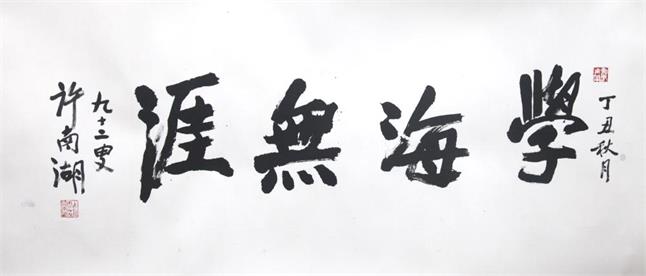 丁丑秋月
學海無涯
九十二叟
許南湖